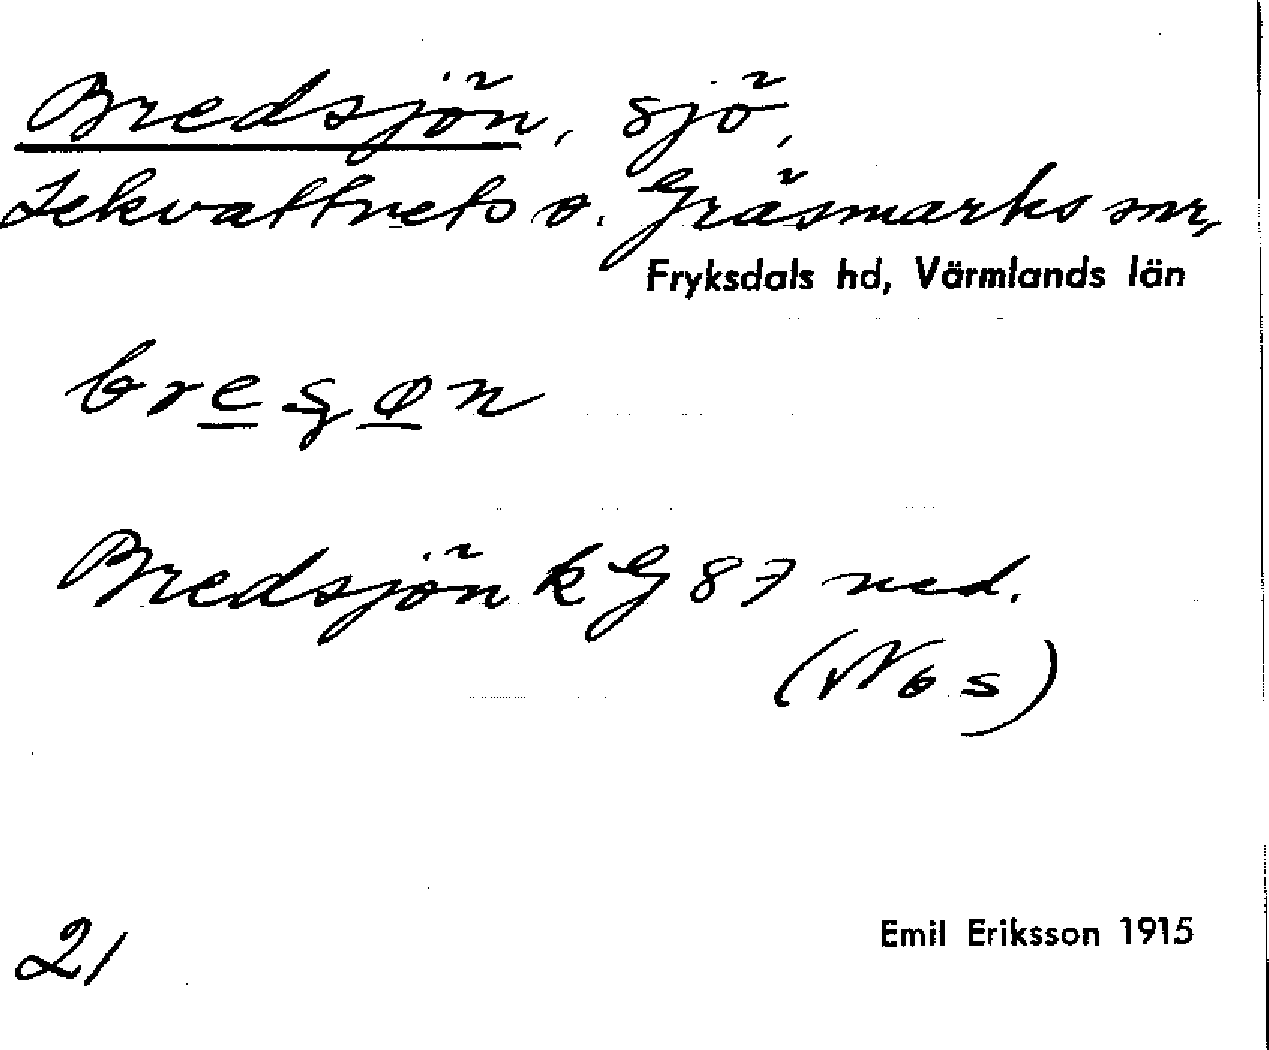 Bredsjön, sjö,
Lekvattnets o. Gräsmarks snr,
Fryksdals hd, Värmlands län
Bredsjön k G 87 ned.
21
Emil Eriksson 1915